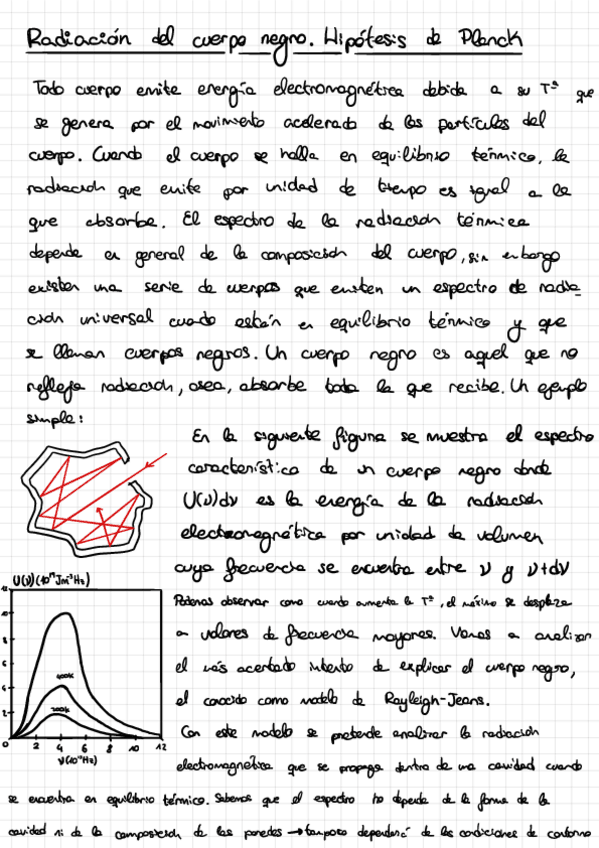 Radiación del cuerpo negro. Hipótesis de Planck
Todo cuerpo emite energía electromagnética debida a su Tª que
se genera por el movimiento acelerado de las partículas del
cuerpo. Cuando el cuerpo se halla en equilibrio térmico, la
radiación que emite por unidad de tiempo es igual a la
que absorbe. El espectro de la radiación térmica
depende en general de la composición del cuerpo, sin embargo
existen una serie de cuerpos que emiten un espectro de radia-
ción universal cuando están en equilibrio térmico y que
se llaman cuerpos negros. Un cuerpo negro es aquel que no
refleja radiación, osea, absorbe toda la que recibe. Un ejemplo
simple:
En la siguiente figura se muestra el espectro
característico de un cuerpo negro donde
U(ν)dν es la energía de la radiación
electromagnética por unidad de volumen
cuya frecuencia se encuentra entre ν y ν+dν
Podemos observar como cuando aumenta la Tª, el máximo se desplaza
a valores de frecuencia mayores. Vamos a analizar
el más acertado intento de explicar el cuerpo negro,
el conocido como modelo de Rayleigh-Jeans.
Con este modelo se pretende analizar la radiación
electromagnética que se propaga dentro de una cavidad cuando
se encuentra en equilibrio térmico. Sabemos que el espectro no depende de la forma de la
cavidad ni de la composición de las paredes → tampoco dependerá de las condiciones de contorno
U(ν)
0 2 4 6 8 10 12